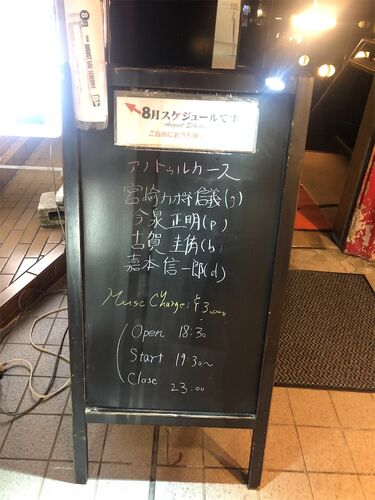 8月
8月スケジュールです
August Schedule
ご自由にお持ち帰り
アノトゥルカース
宮崎カポネ信義(g)
今泉正明(p)
古賀圭侑(b)
嘉本信一郎(d)
Music Charge: ¥3,000
Open 18:30
Start 19:30~
Close 23:00